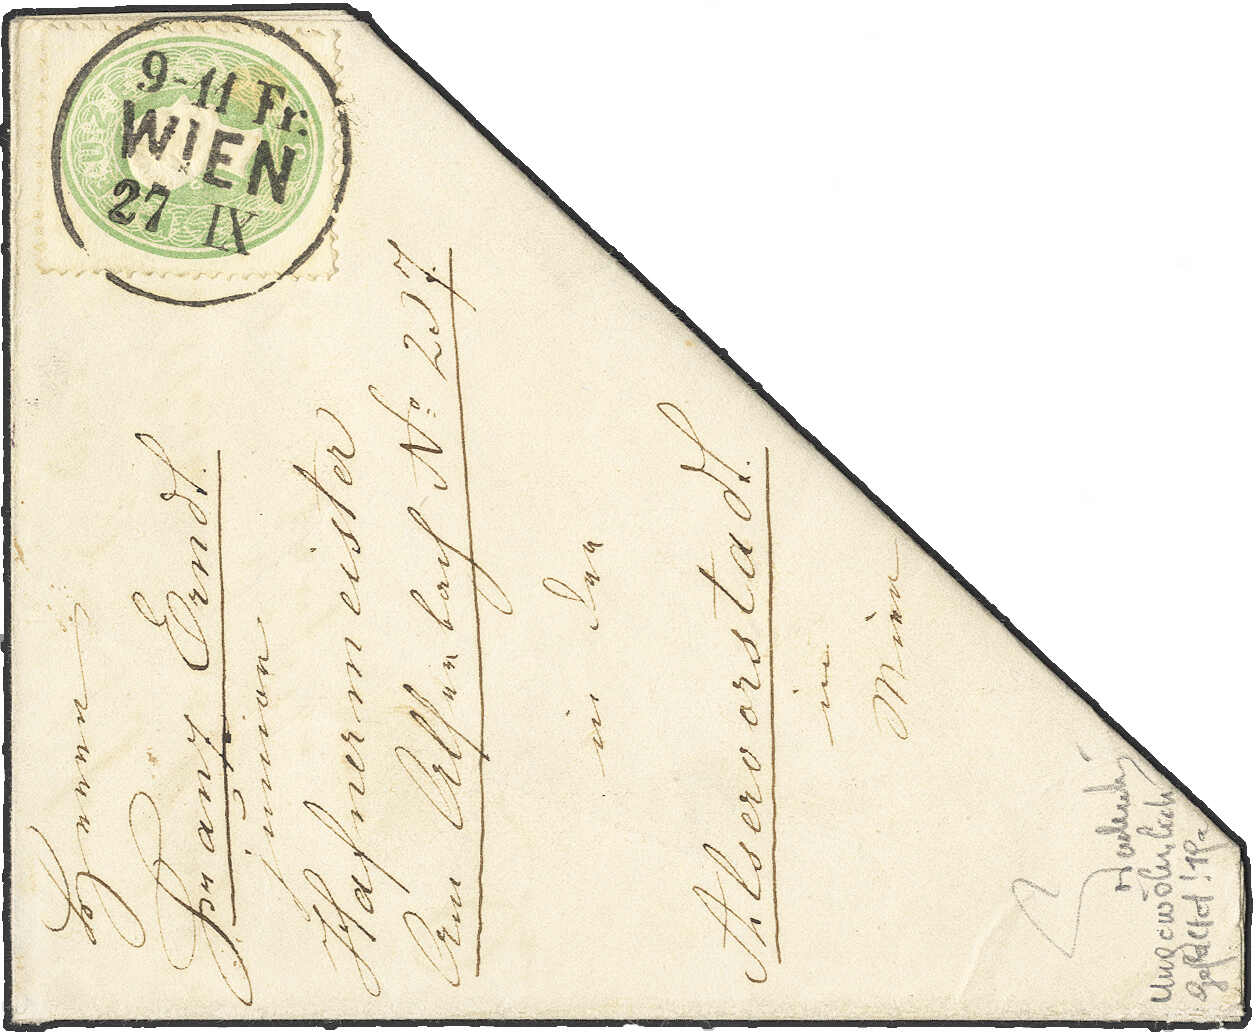 9-11 Fr.
WIEN
27 IX
Herrn
Franz Erndt.
junior
Hafnermeister
Am Alserbach No 257.
in der
Alservorstadt.
in
Wien
Ungewöhnlich
gefaltet!